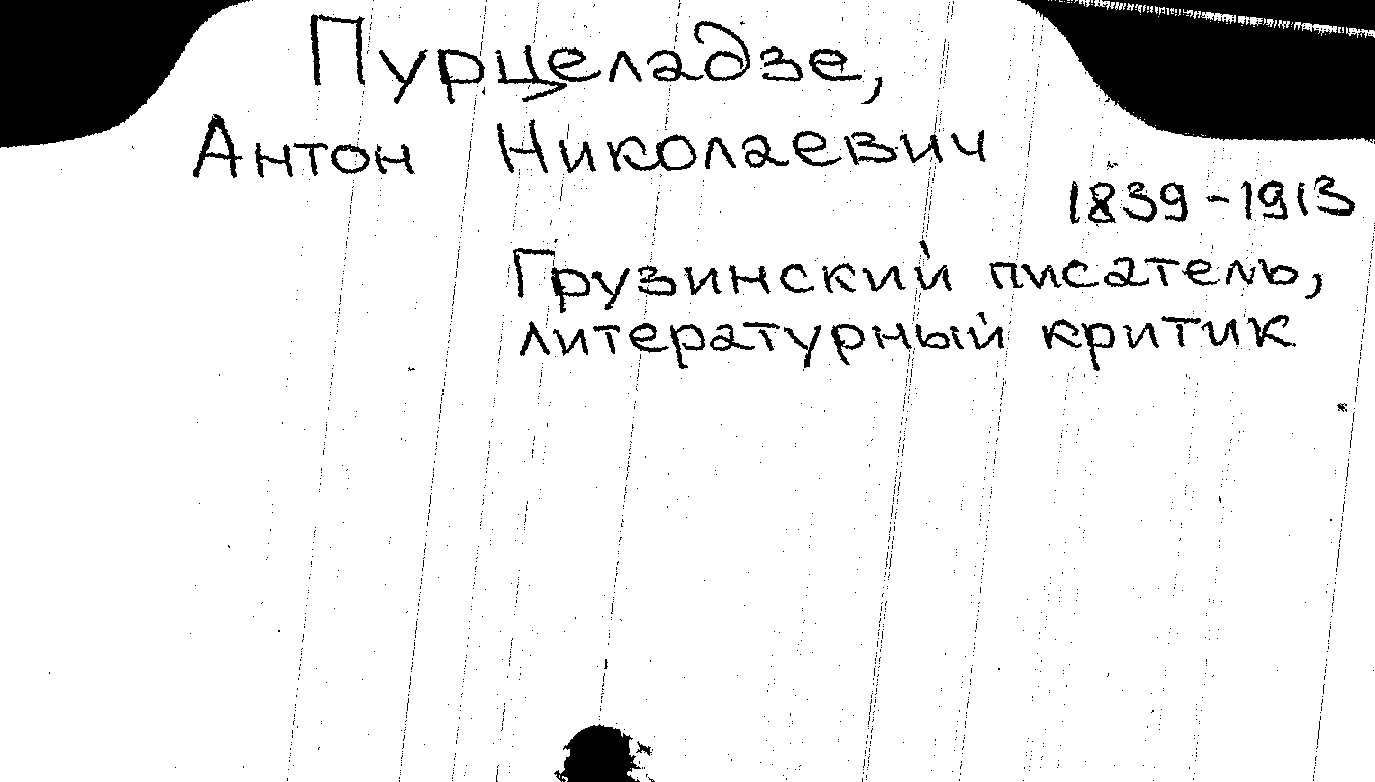 Пурцеладзе,
Антон Николаевич
1839-1913
Грузинский писатель,
литературный критик